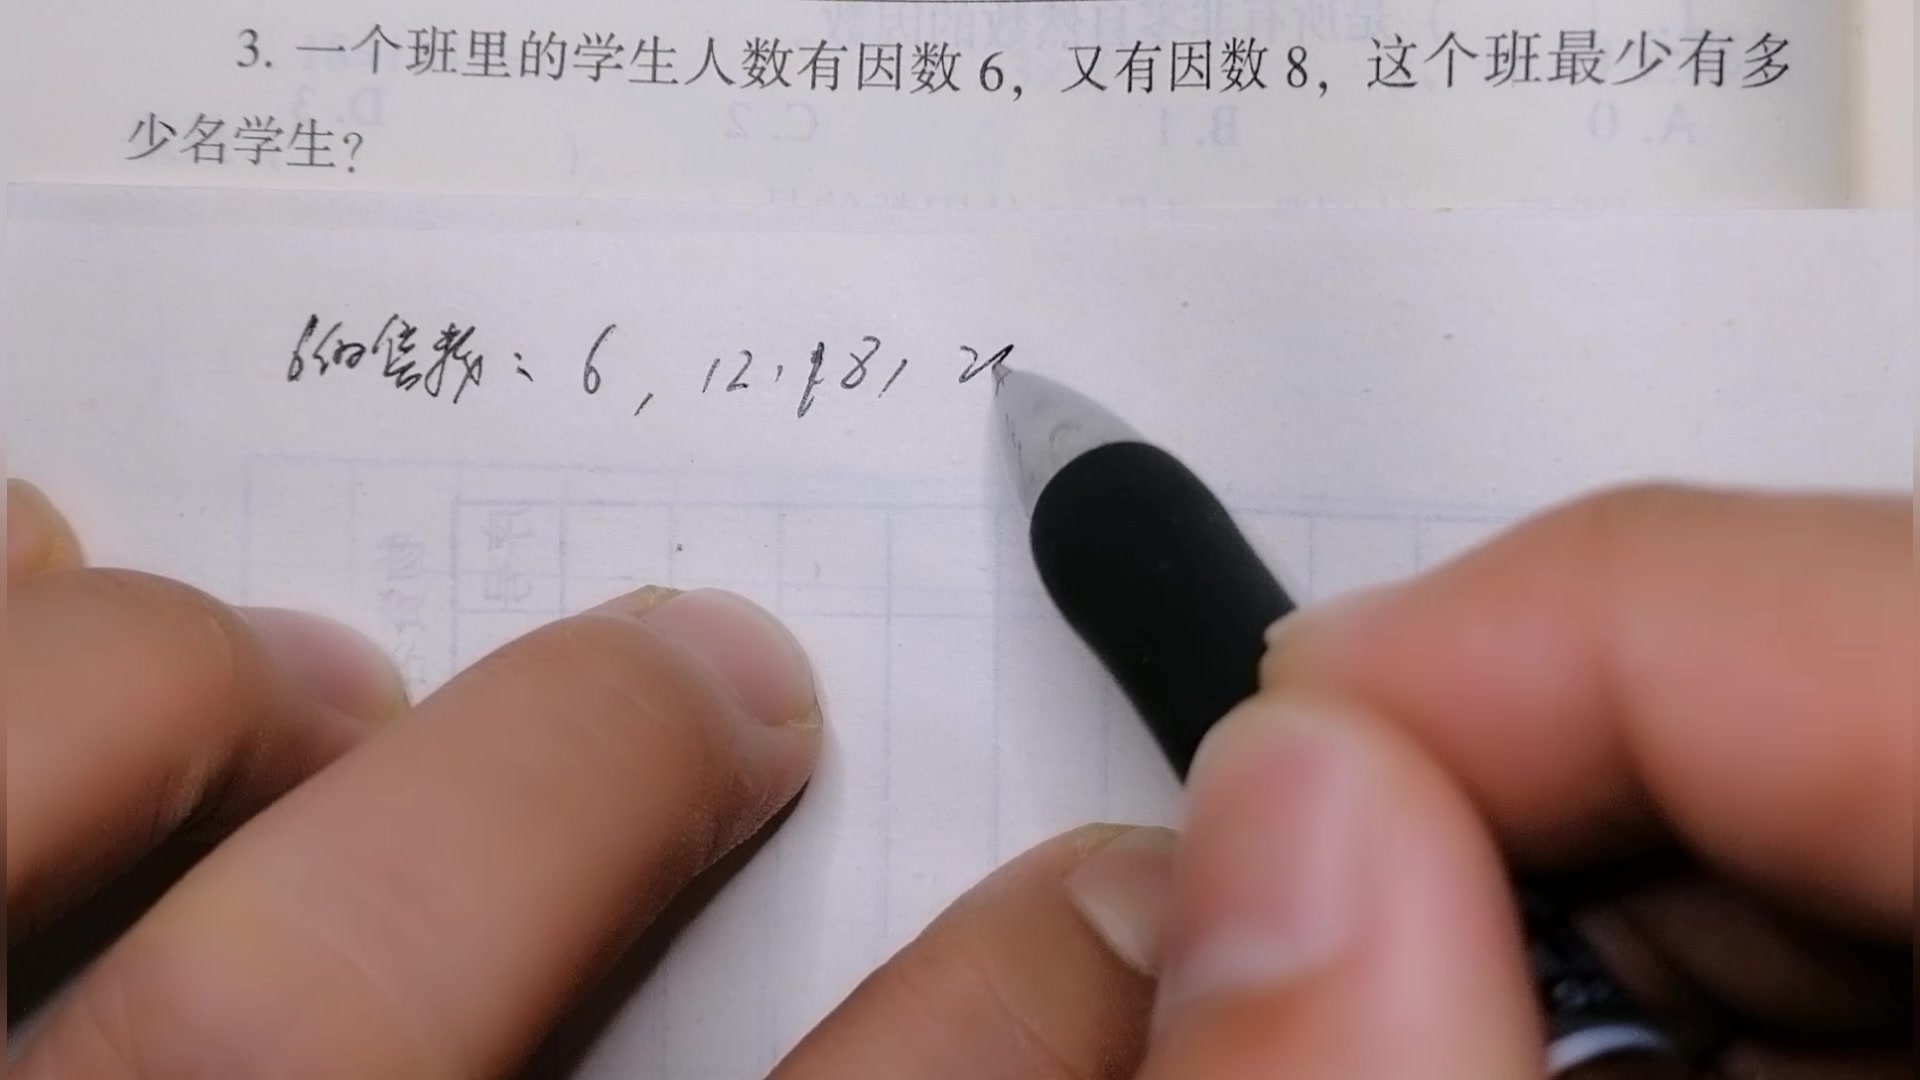 3. 一个班里的学生人数有因数6，又有因数8，这个班最少有多
少名学生？
6的倍数：6，12，18，24